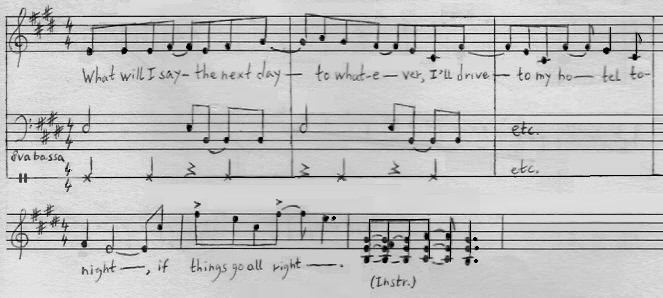 What will I say- the next day — to what-e — ver, I'll drive — to my ho — tel to-
etc.
8va bassa
etc.
night —, if things go all right —.
(Instr.)